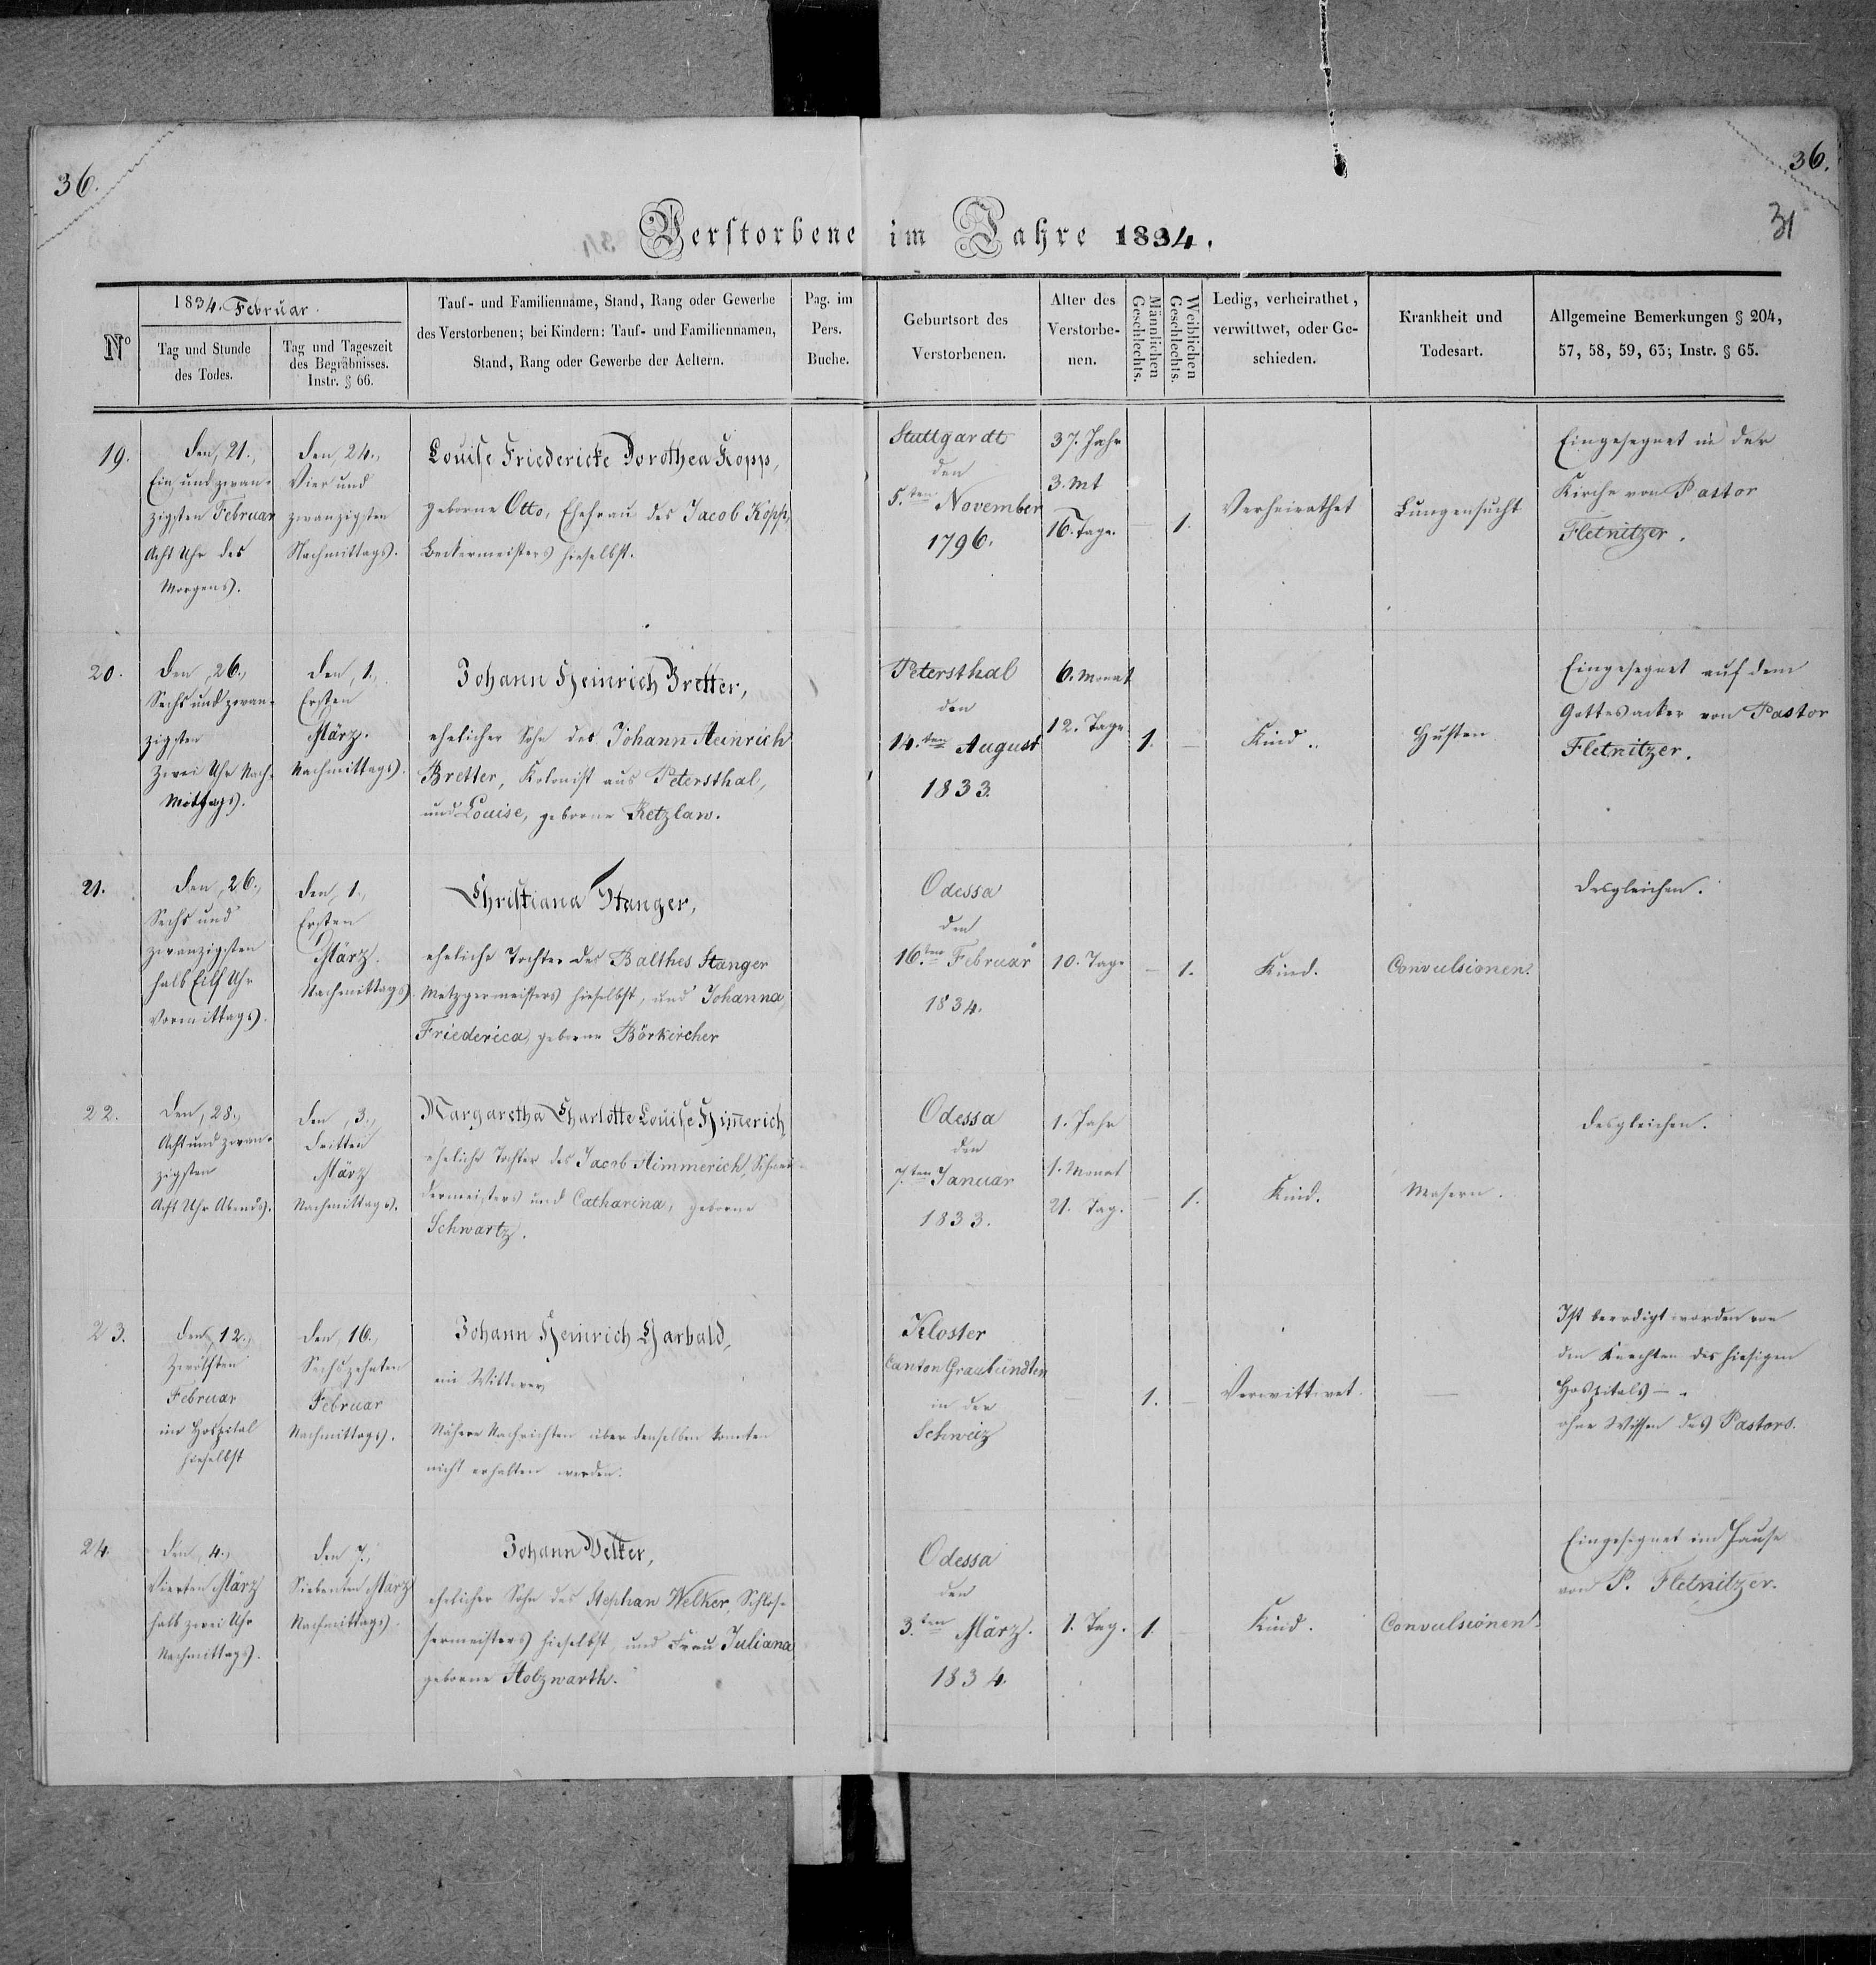 36.
36.
31
Verstorbene im Jahre 1834.
No
1834. Februar.
Tag und Stunde
des Todes.
Tag und Tageszeit
des Begräbnisses.
Instr. § 66.
Tauf- und Familienname, Stand, Rang oder Gewerbe
des Verstorbenen; bei Kindern: Tauf- und Familiennamen,
Stand, Rang oder Gewerbe der Aeltern.
Pag. im
Pers.
Buche.
Geburtsort des
Verstorbenen.
Alter des
Verstorbe-
nen.
Männlichen
Geschlechts.
Weiblichen
Geschlechts.
Ledig, verheirathet,
verwittwet, oder Ge-
schieden.
Krankheit und
Todesart.
Allgemeine Bemerkungen § 204,
57, 58, 59, 63; Instr. § 65.
19.
den, 21.,
Ein und zwan-
zigsten Februar
Acht Uhr des
Morgens.
den, 24.,
Vier und
zwanzigsten
Nachmittags.
Louise Friedericke Dorothea Kopp,
geborne Otto, Ehefrau des Jacob Kopp,
Beckermeisters hieselbst.
Stuttgardt
den
5.ten November
1796.
37. Jahr
3. Mt
16. Tage.
—
1.
Verheirathet
Lungensucht
Eingesegnet in der
Kirche von Pastor
Fletnitzer.
20.
den, 26.,
Sechs und zwan-
zigsten
Zwei Uhr Nach-
Mittags.
den, 1.,
Ersten
März.
Nachmittags.
Johann Heinrich Bretter,
ehelicher Sohn des Johann Heinrich
Bretter, Kolonist aus Petersthal,
und Louise, geborne Retzlaw.
Petersthal
den
14.ten August
1833.
6. Monat
12. Tage
1.
—
Kind.
Husten
Eingesegnet auf dem
Gottesacker von Pastor
Fletnitzer.
21.
den, 26.,
Sechs und
zwanzigsten
halb Eilf Uhr
Vormittags.
den, 1.,
Ersten
März.
Nachmittags.
Christiana Stanger,
eheliche Tochter des Balthes Stanger
Metzgermeisters hieselbst, und Johanna
Friederica, geborne Börkircher
Odessa
den
16.ten Februar
1834.
10. Tage
—
1.
Kind.
Convulsionen.
desgleichen.
22.
den, 28.,
Acht und zwan-
zigsten
Acht Uhr Abends.
den, 3.,
dritten
März
Nachmittags.
Margaretha Charlotte Louise Himerich,
eheliche Tochter des Jacob Himmerich, Schnei-
dermeisters und Catharina, geborne
Schwartz.
Odessa
den
7.ten Januar
1833.
1. Jahr
1. Monat
21. Tag.
—
1.
Kind.
Masern.
desgleichen.
23.
den, 12.,
Zwölften
Februar
im Hospital
hieselbst
den, 16.,
Sechszehnten
Februar
Nachmittags.
Johann Heinrich Garbald,
ein Wittwer,
Nähere Nachrichten über denselben konnten
nicht erhalten werden.
Kloster
Canton Graubündten
in der
Schweiz
—
1.
—
Verwittwet.
—
Ist beerdigt worden von
den Knechten des hiesigen
Hospitals —
ohne Wissen des Pastors.
24.
den, 4.,
Vierten März
halb zwei Uhr
Nachmittags.
den 7.,
Siebenten März
Nachmittags.
Johann Welker,
ehelicher Sohn des Stephan Welker, Schlos-
sermeisters hieselbst, und Frau Juliana
geborne Holzwarth.
Odessa
den
3.ten März.
1834.
1. Tag.
1.
—
Kind.
Convulsionen.
Eingesegnet im Hause
von P. Fletnitzer.